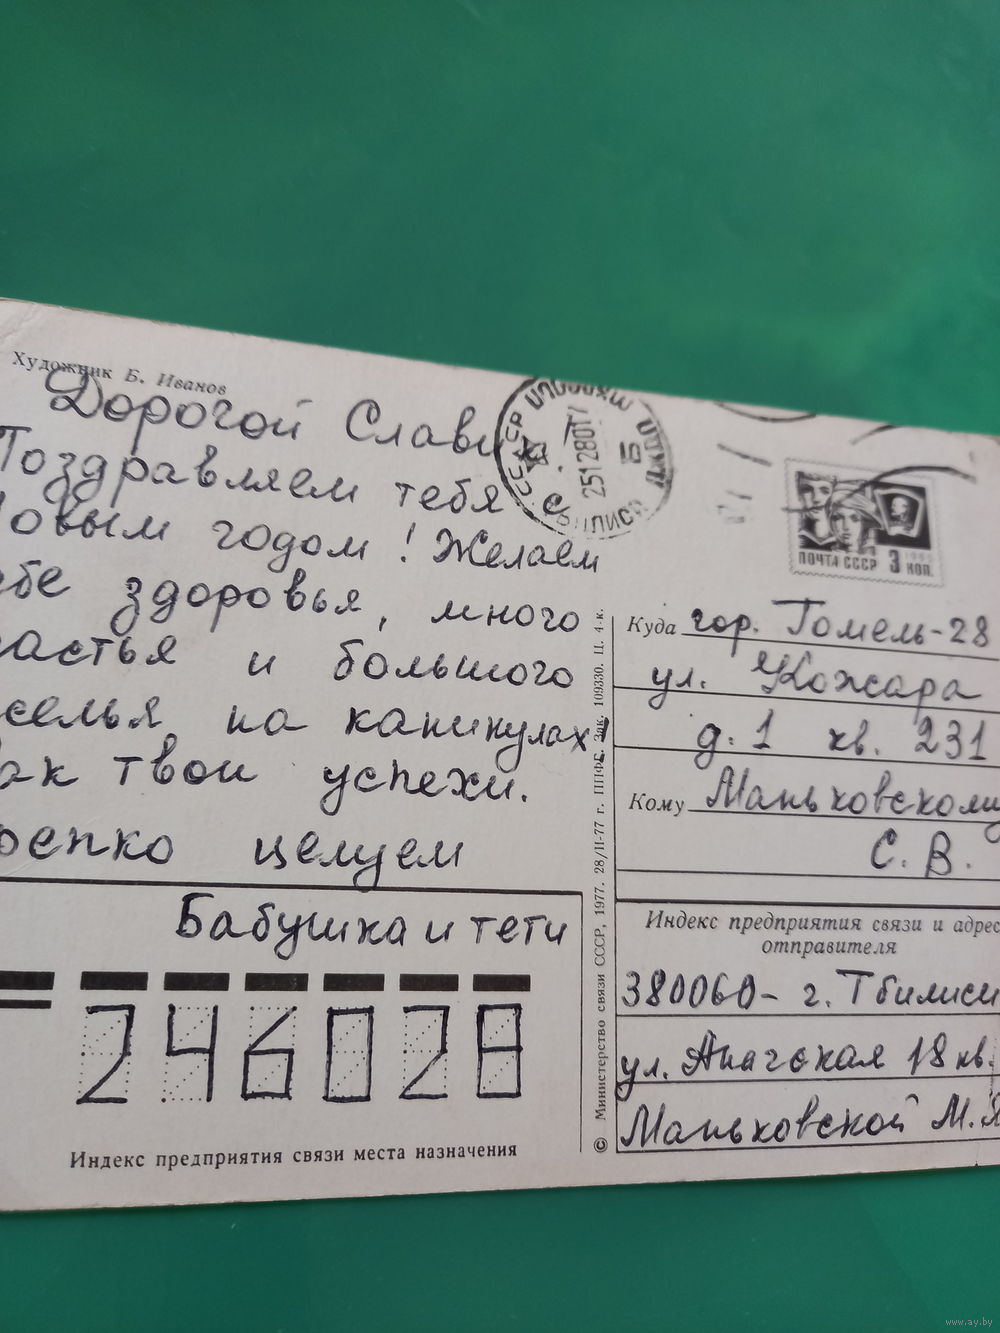 Художник Б. Иванов
Дорогой Славик
Поздравляем тебя с
Новым годом! Желаем
ебе здоровья, много
частья и большого
селья на каникулах!
ак твои успехи.
репко целуем
Бабушка и тети
246028
Индекс предприятия связи места назначения
© Министерство связи СССР, 1977. 28/II-77 г. ППФГ. Зак. 109330. Ц. 4 к.
251280
ПОЧТА СССР 3 КОП.
Куда гор. Гомель-28
ул. Кожара
д. 1 кв. 231
Кому Маньковскому
С. В.
Индекс предприятия связи и адрес
отправителя
380060 - г. Тбилиси
ул. 18 кв.
Маньковской М. Я
www.ay.by